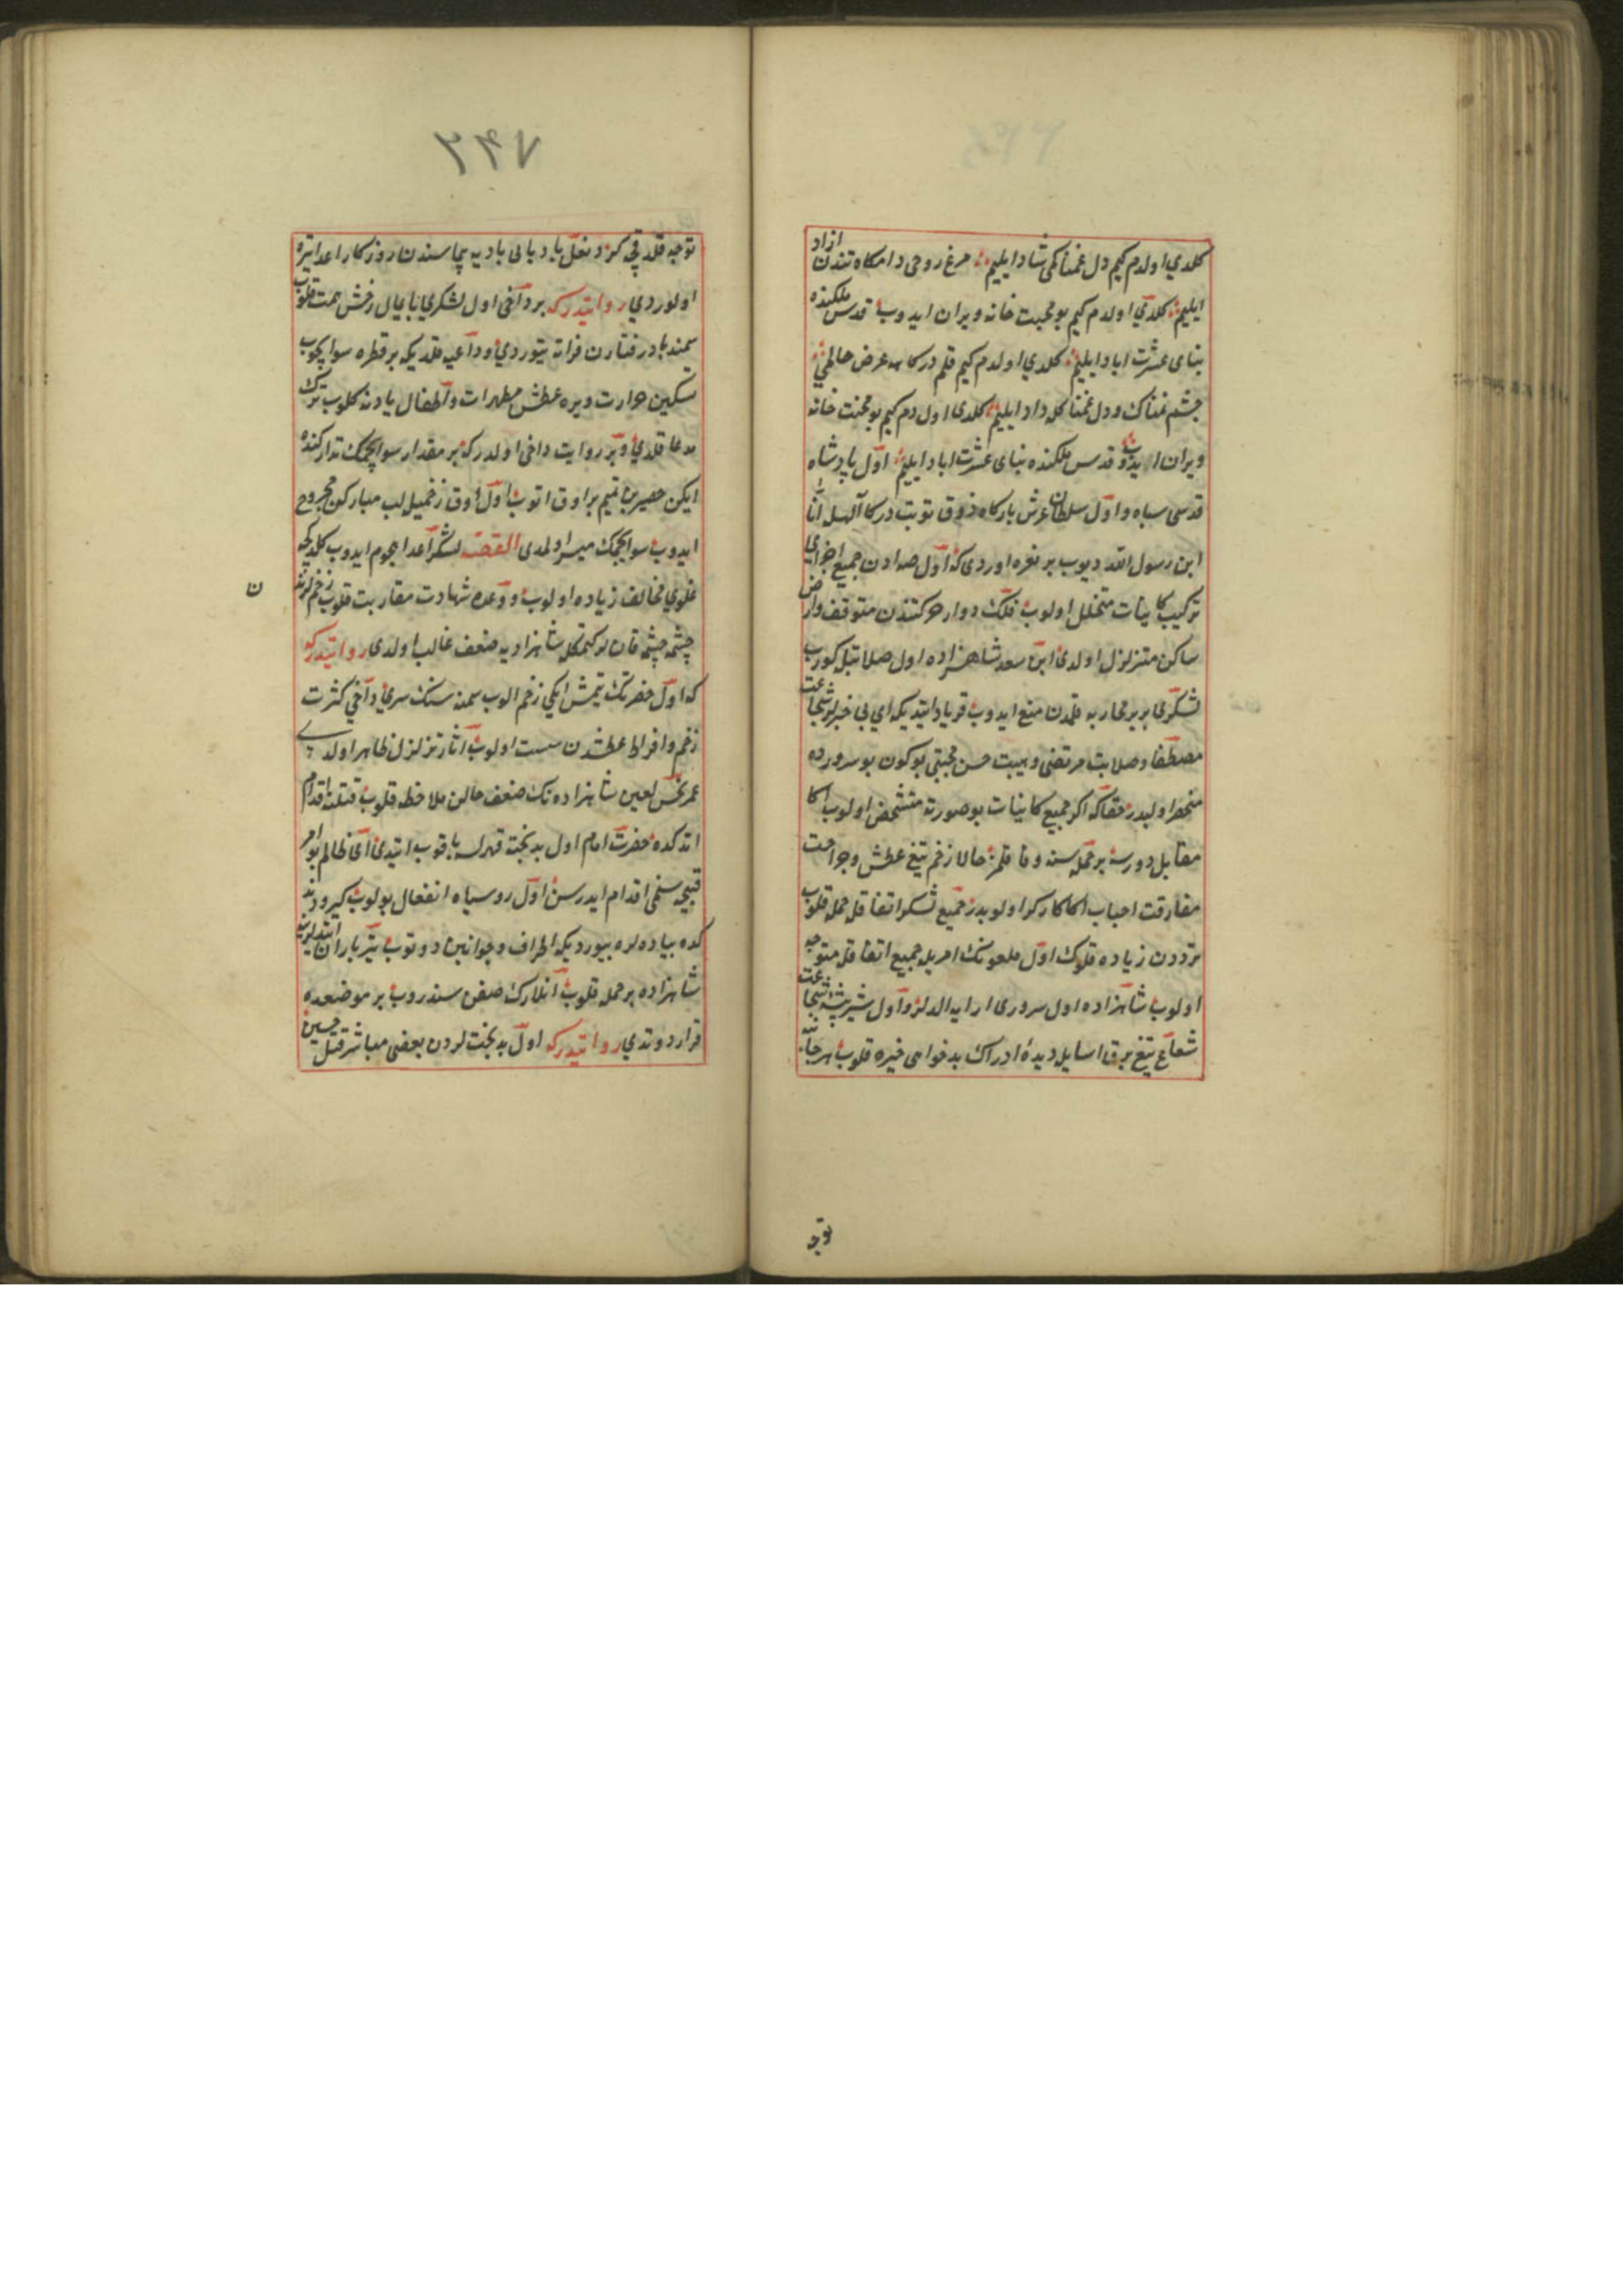 كلدي اولدم كيم دل غمناكمى شاد ايليم مرغ روحى دامكاه تندن ازاد
ايليم كلدي اولدم كيم بو محبت خانه ويران ايدوب قدس ملكنده
بناى عشرت اباد ايليم كلدي اولدم كيم قلم دركاهه عرض حالمى
چشم نمناك ودل غمناكله داد ايليم كلدى اول دم كيم بو محنت خانه
ويران ايدوب قدس ملكنده بناى عشرت اباد ايليم اول پادشاه
قدسى سپاه واول سلطان عرش باركاه ذوق توبت دركا الهـل انا
ابن رسول الله ديوب بر نعره اوردى كه اول صدادن جميع اجزاى
تركيب كاينات متخلل اولوب فلك دوار حركتندن متوقف وارض
ساكن متزلزل اولدى ابن سعد شاهزاده اول صلابتله كورب
لشكرى برير محاربه قلمدن منع ايدوب فرياد ايتديكه اى بى خبرلر شجاعت
مصطفا وصلابت مرتضى وهيبت حسن مجتبى بوكون بو سرورده
منحصر اولبدر حقاكه اكر جميع كاينات بو صورته متشخص اولوب اكا
مقابل دورسه بر حمله سنه وفا قلمز حالا زخم تيغ عطش وجراحت
مفارقت احباب اكا كاركر اولوبدر جميع لشكر اتفاقله حمله قلوب
ترددن زياده قلوك اول ملعونك امريله جميع اتفاقله متوجه
اولوب شاهزاده اول سرورى ارايه الدلر واول شير بيشه شجاعت
شعاع تيغ برق اسايله ديدهٔ ادراك بدخواهى خيره قلوب هر جانبه
توجه
توجه قلدقجه كرد نعل بادپاى باديه پيماسندن روزكار اعدا تيره
اولوردي روايتدركه بر دآخى اول لشكري پايمال رخش همت قلوب
سمند بادرفتارن فراته يتوردي وداعيه قلديكه بر قطره سو ايچوب
تسكين حرارت ويره عطش مطهرات واطفال يادنه كلوب ترك
مدعا قلدي وبر روايت داخى اولدركه بر مقدار سو ايچمك تداركنده
ايكن حصين بن نميم بر اوق اتوب اول اوق زخميله لب مباركن مجروح
ايدوب سو ايچمك ميسر اولمدى القصه لشكر اعدا هجوم ايدوب كلدكجه
غلوي مخالف زياده اولوب ووعده شهادت مقاربت قلوب زخملرندن
چشمه چشمه قان لر كيتمكله شاهزاديه ضعف غالب اولدى روايتدركه
كه اول حضرتك يتمش ايكى زخم الوب سمنه سنك سرى دآخي كثرت
زخم وافراط عطشدن سست اولوب اثار تزلزل ظاهر اولدي
عمر نحس لعين شاهزاده نك ضعف حالن ملاحظه قلوب قتلنه اقدام
اتدكده حضرت امام اول بدبخته قهرله باقوب ايتدى اى ظالم بو امر
قبيحه سنمى اقدام ايدرسن اول روسياه انفعال بولوب كيرو دوند
كده پياده لره بيورديكه اطراف وجوانبن دوتوب تير باران ايتديلر
شاهزاده بر حمله قلوب انلارك صفن سندروب بر موضعده
قرار دوتدي روايتدركه اول بدبخت لردن بعضى مباشر قتل حسين
ن